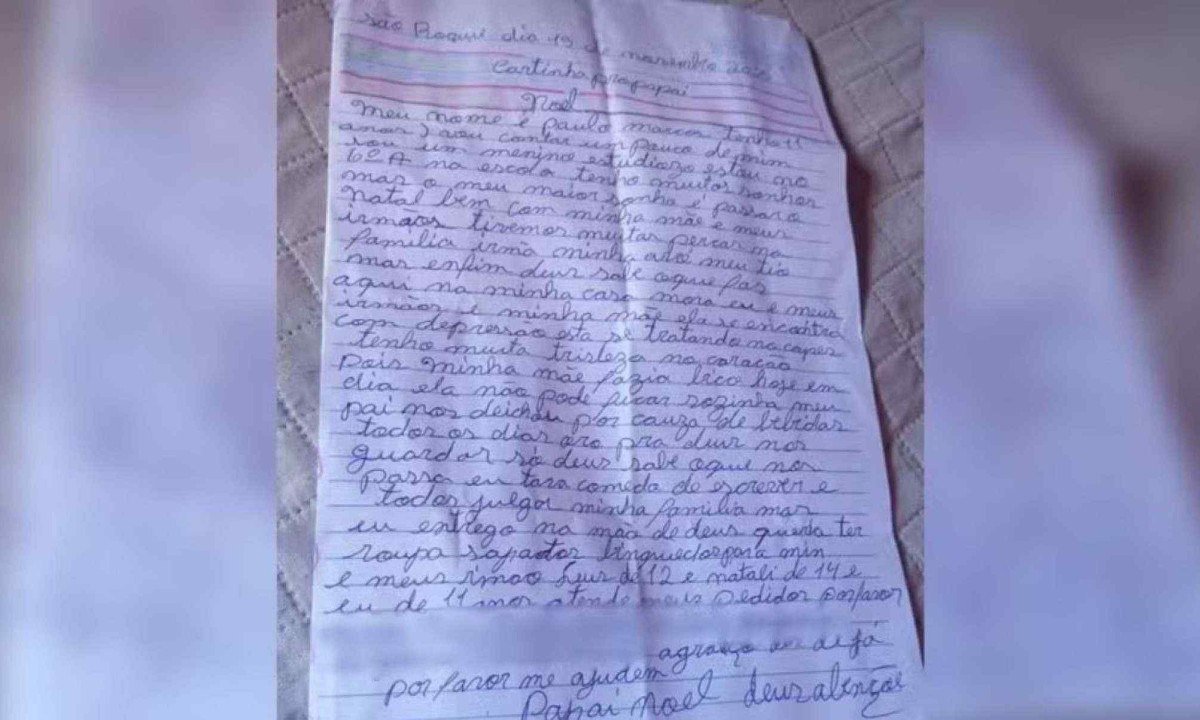 São Roque dia 19 de novembro
Cartinha pra papai
Noel
Meu nome é paulo marcos tenho 11
anos) vou contar um pouco de mim
sou um menino estudiozo estou no
6º A na escola tenho muitos sonhos
mas o meu maior sonho é passar o
natal bem com minha mãe e meus
irmãos tivemos muitas percas na
familia irmã minha avó meu tio
mas enfim deus sabe oque fas
aqui na minha casa mora eu e meus
irmãos e minha mãe ela se encontra
com depressão está se tratando no capes
tenho muita tristeza no coração
pois minha mãe fazia bico hoje em
dia ela não pode ficar sozinha meu
pai nos deichou por cauza de bebidas
todos os dias oro pra deus nos
guardar só deus sabe oque nos
passa eu tava comedo de escrever e
todos julgar minha familia mas
eu entrego na mão de deus queria ter
roupa sapatos binquedos para min
e meus irmão de 12 e natali de 14 e
eu de 11 nos atende meus pedidos por favor
agradeço des de já
por favor me ajudem
Papai noel deus abençoe